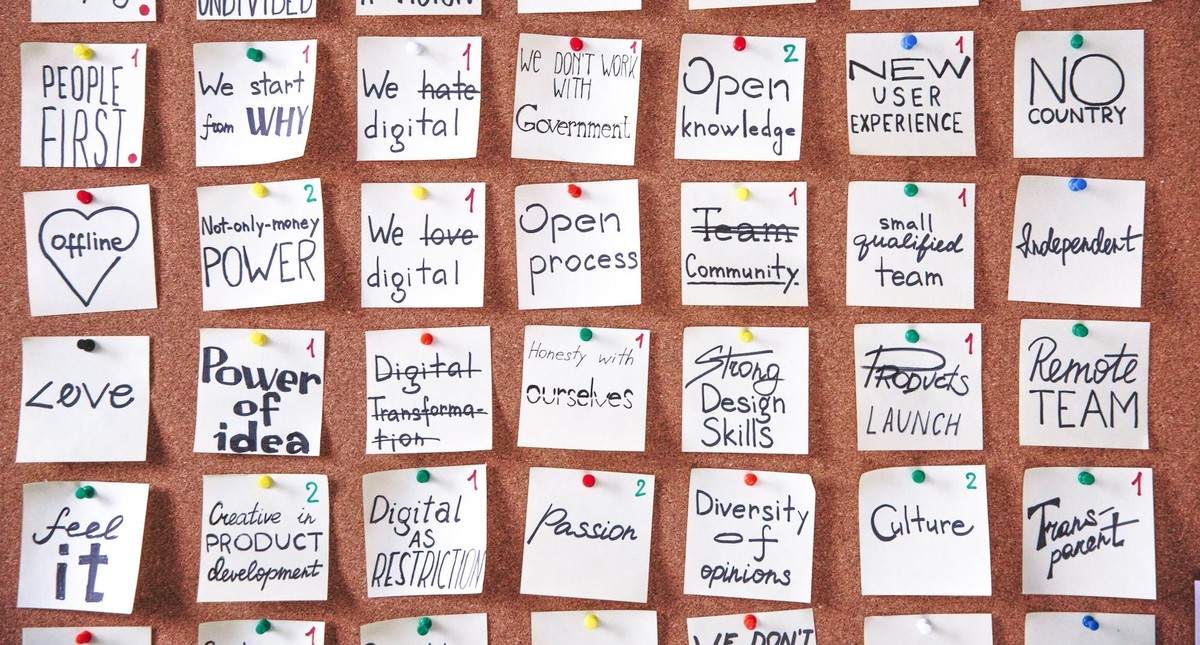 UNDIVIDED
1
PEOPLE
FIRST
1
We start
from WHY
1
We hate
digital
1
We DON'T WORK
WITH
Government
2
Open
knowledge
1
NEW
USER
EXPERIENCE
NO
COUNTRY
offline
2
Not-only-money
POWER
1
We love
digital
Open
process
1
Team
Community.
1
small
qualified
team
Independent
LOVE
1
Power
of
idea
Digital
Transforma-
tion
1
Honesty with
ourselves
Strong
Design
Skills
1
PRODUCTS
LAUNCH
Remote
TEAM
feel
it
2
Creative in
PRODUCT
development
1
Digital
AS
RESTRICTION
2
Passion
Diversity
of
opinions
2
Culture
1
Trans-
parent
1
WE DON'T